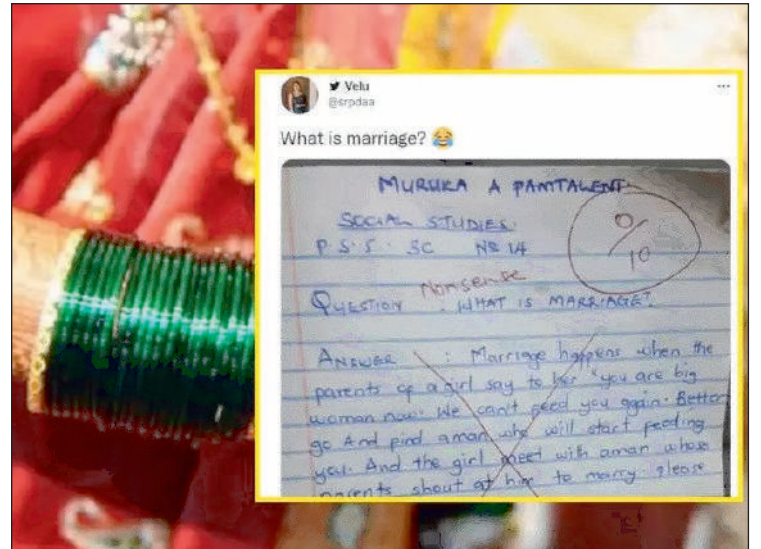 Velu
@srpdaa
What is marriage? 😂
MURUKA A PAMTALENT.
SOCIAL STUDIES.
P.S.5. SC NO 14
0/10
Nonsense
QUESTION . WHAT IS MARRIAGE?
ANSWER : Marriage happens when the
parents of a girl say to her "you are big
woman now. We can't feed you again. Better
go And find a man who will start feeding
you. And the girl meet with a man whose
parents shout at him to marry please